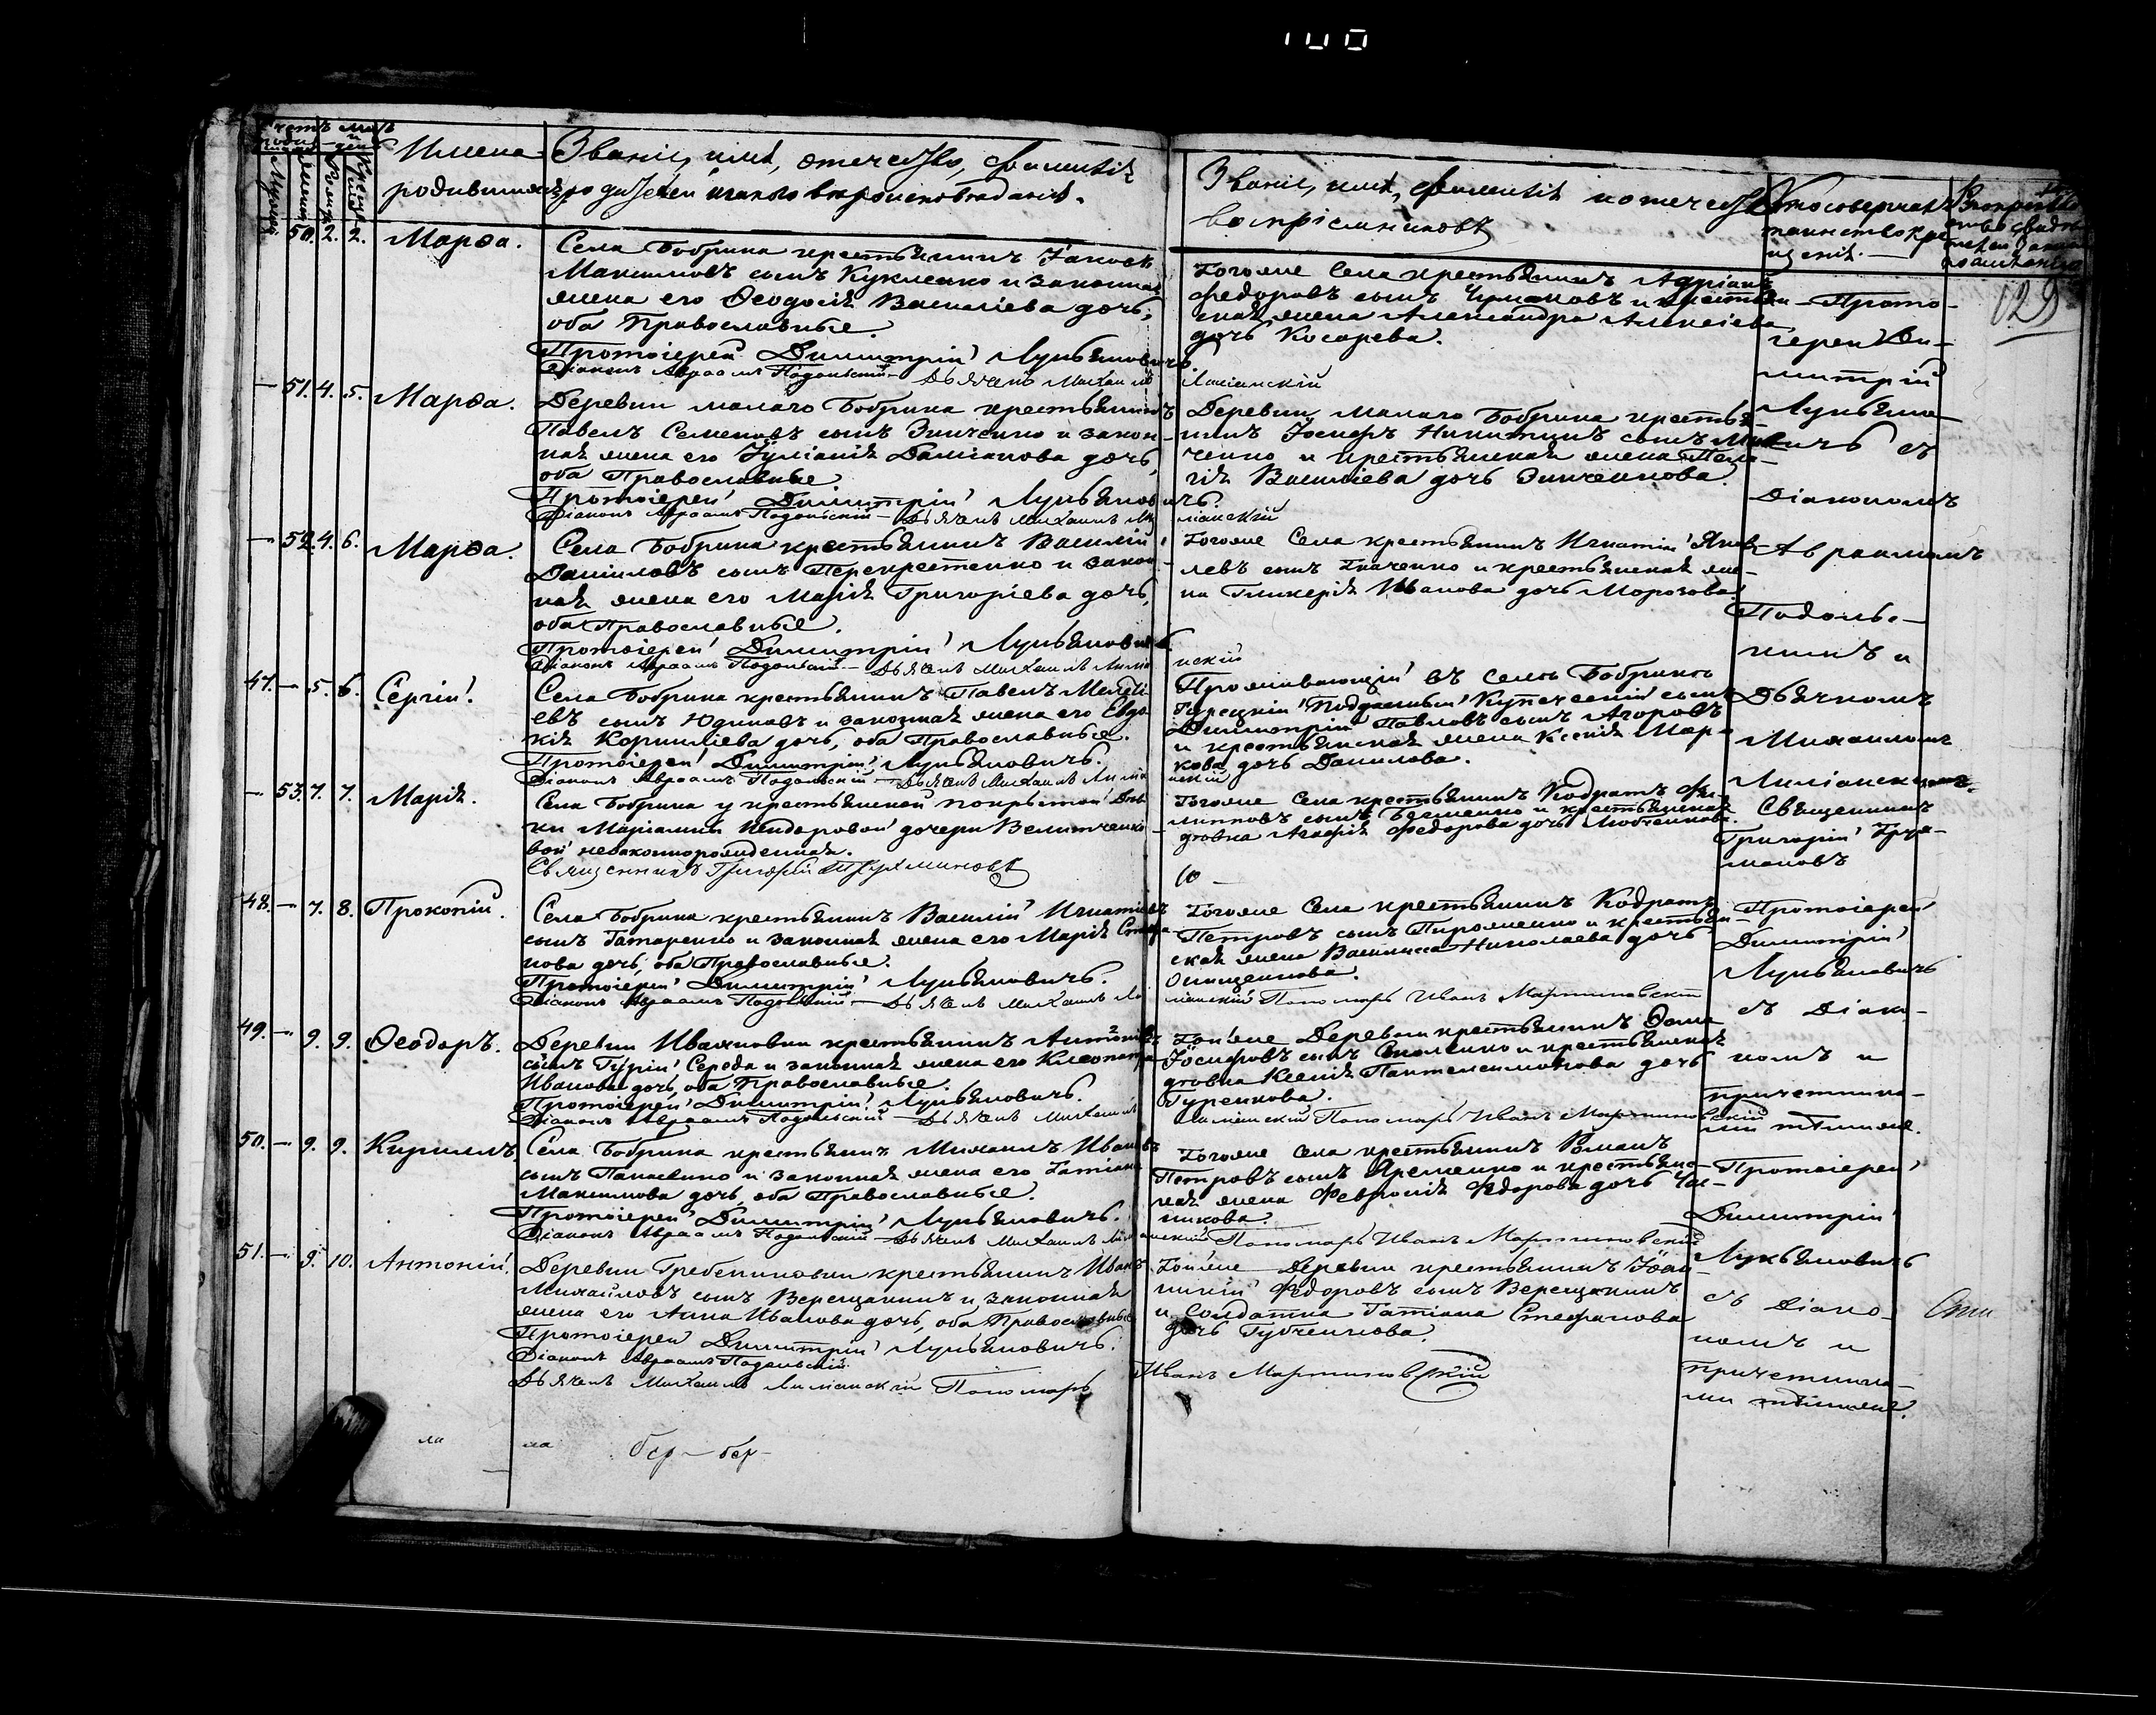 100
Имена
родившихся
Званіе, имя, отечество, фамилія
родителей и какого вѣроисповѣданія.
Званіе, имя, фамилія и отечество
воспріемниковъ
Кто совершалъ
таинство кре-
щенія.
129
50. 2. 2. Марѳа.
Села Бобрика крестьянинъ Іаковъ
Максимовъ сынъ Кукленко и законная
жена его Ѳеодосія Василіева дочь,
оба Православные.
Протоіерей Димитрій Лукьяновичъ
Діаконъ Авраамъ Подольскій – Дьячекъ Михаилъ
Тогоже Села крестьянинъ Адріанъ
Федоровъ сынъ Чумаковъ и крестьян-
ская жена Александра Алексіева
дочь Косарева.
Прото-
іерей Ди-
митрій
Лукьяно-
вичъ съ
Діакономъ
Авраамомъ
Подоль-
скимъ и
Дьячкомъ
Михаиломъ
— 51. 4. 5. Марѳа.
Деревни малаго Бобрика крестьянинъ
Павелъ Семеновъ сынъ Зинченко и закон-
ная жена его Іуліанія Даміанова дочь,
оба Православные.
Протоіерей Димитрій Лукьяновичъ.
Діаконъ Авраамъ Подольскій – Дьячекъ Михаилъ
Деревни малаго Бобрика крестья-
нинъ Іосифъ Никитинъ сынъ
ченко и крестьянская жена Пела-
гія Василіева дочь Зинченкова.
— 52. 4. 6. Марѳа.
Села Бобрика крестьянинъ Василій
Даніиловъ сынъ Перекрестенко и закон-
ная жена его Марія Григоріева дочь,
оба Православные.
Протоіерей Димитрій Лукьяновичъ.
Діаконъ Авраамъ Подольскій – Дьячекъ Михаилъ
Тогоже Села крестьянинъ Игнатій Яков-
левъ сынъ Ткаченко и крестьянская же-
на Гликерія Иванова дочь Морозова.
47. — 5. 6. Сергій.
Села Бобрика крестьянинъ Павелъ Мелеті-
евъ сынъ Юдиновъ и законная жена его Евдо-
кія Корниліева дочь, оба Православные.
Протоіерей Димитрій Лукьяновичъ.
Діаконъ Авраамъ Подольскій – Дьячекъ Михаилъ
Проживающій въ селѣ Бобрикѣ
Турецкій Подданный Купеческій сынъ
Димитрій Павловъ сынъ Агоровъ
и крестьянская жена Ксенія Мар-
кова дочь Данилова.
— 53. 7. 7. Марія.
Села Бобрика у крестьянской покрытой Дѣв-
ки Маріамніи Исидоровой дочери Велитченко-
вой незаконнорожденная.
Священникъ Григорій Трухмановъ
Тогоже Села крестьянинъ Кодратъ Фи-
липповъ сынъ и крестьянская
дѣвка Агафія Федорова дочь
Священникъ
Григорій Трух-
мановъ
48. — 7. 8. Прокопій.
Села Бобрика крестьянинъ Василій Игнатіевъ
сынъ Татаренко и законная жена его Марія Стефа-
нова дочь, оба Православные.
Протоіерей Димитрій Лукьяновичъ.
Діаконъ Авраамъ Подольскій – Дьячекъ Михаилъ
Тогоже Села крестьянинъ Кодратъ
Петровъ сынъ Пироженко и крестьян-
ская жена Василиса Николаева дочь
Онищенкова.
Пономарь Иванъ Мартиновскій
Протоіерей
Димитрій
Лукьяновичъ
съ Діако-
номъ и
причетника-
ми тѣмиже.
49. — 9. 9. Ѳеодоръ.
Деревни Ивахновки крестьянинъ Антоній
сынъ Гурій Середа и законная жена его Клеопатра
Иванова дочь, оба Православные.
Протоіерей Димитрій Лукьяновичъ.
Діаконъ Авраамъ Подольскій – Дьячекъ Михаилъ
Тойже Деревни крестьянинъ Ѳома
Іосифовъ сынъ Соколенко и крестьянская
дѣвка Ксенія Пантелеимонова дочь
Гуренкова.
Пономарь Иванъ Мартиновскій
50. — 9. 9. Кириллъ.
Села Бобрика крестьянинъ Михаилъ Ивановъ
сынъ Панасенко и законная жена его Татіана
Максимова дочь, оба Православные.
Протоіерей Димитрій Лукьяновичъ.
Діаконъ Авраамъ Подольскій – Дьячекъ Михаилъ
Тогоже Села крестьянинъ Романъ
Петровъ сынъ Яременко и крестьянс-
кая жена Февронія Федорова дочь Час-
никова.
Пономарь Иванъ Мартиновскій
Протоіерей
Димитрій
Лукьяновичъ
съ Діако-
номъ и
причетника-
ми тѣмиже.
51. — 9. 10. Антоній.
Деревни Гребениковки крестьянинъ Иванъ
Михайловъ сынъ Верещакинъ и законная
жена его Анна Иванова дочь, оба Православные
Протоіерей Димитрій Лукьяновичъ.
Діаконъ Авраамъ Подольскій.
Дьячекъ Михаилъ Пономарь Иванъ Мартиновскій
Тойже Деревни крестьянинъ Іоан-
никій Федоровъ сынъ Верещакинъ
и Солдатка Татіана Стефанова
дочь Губченкова.